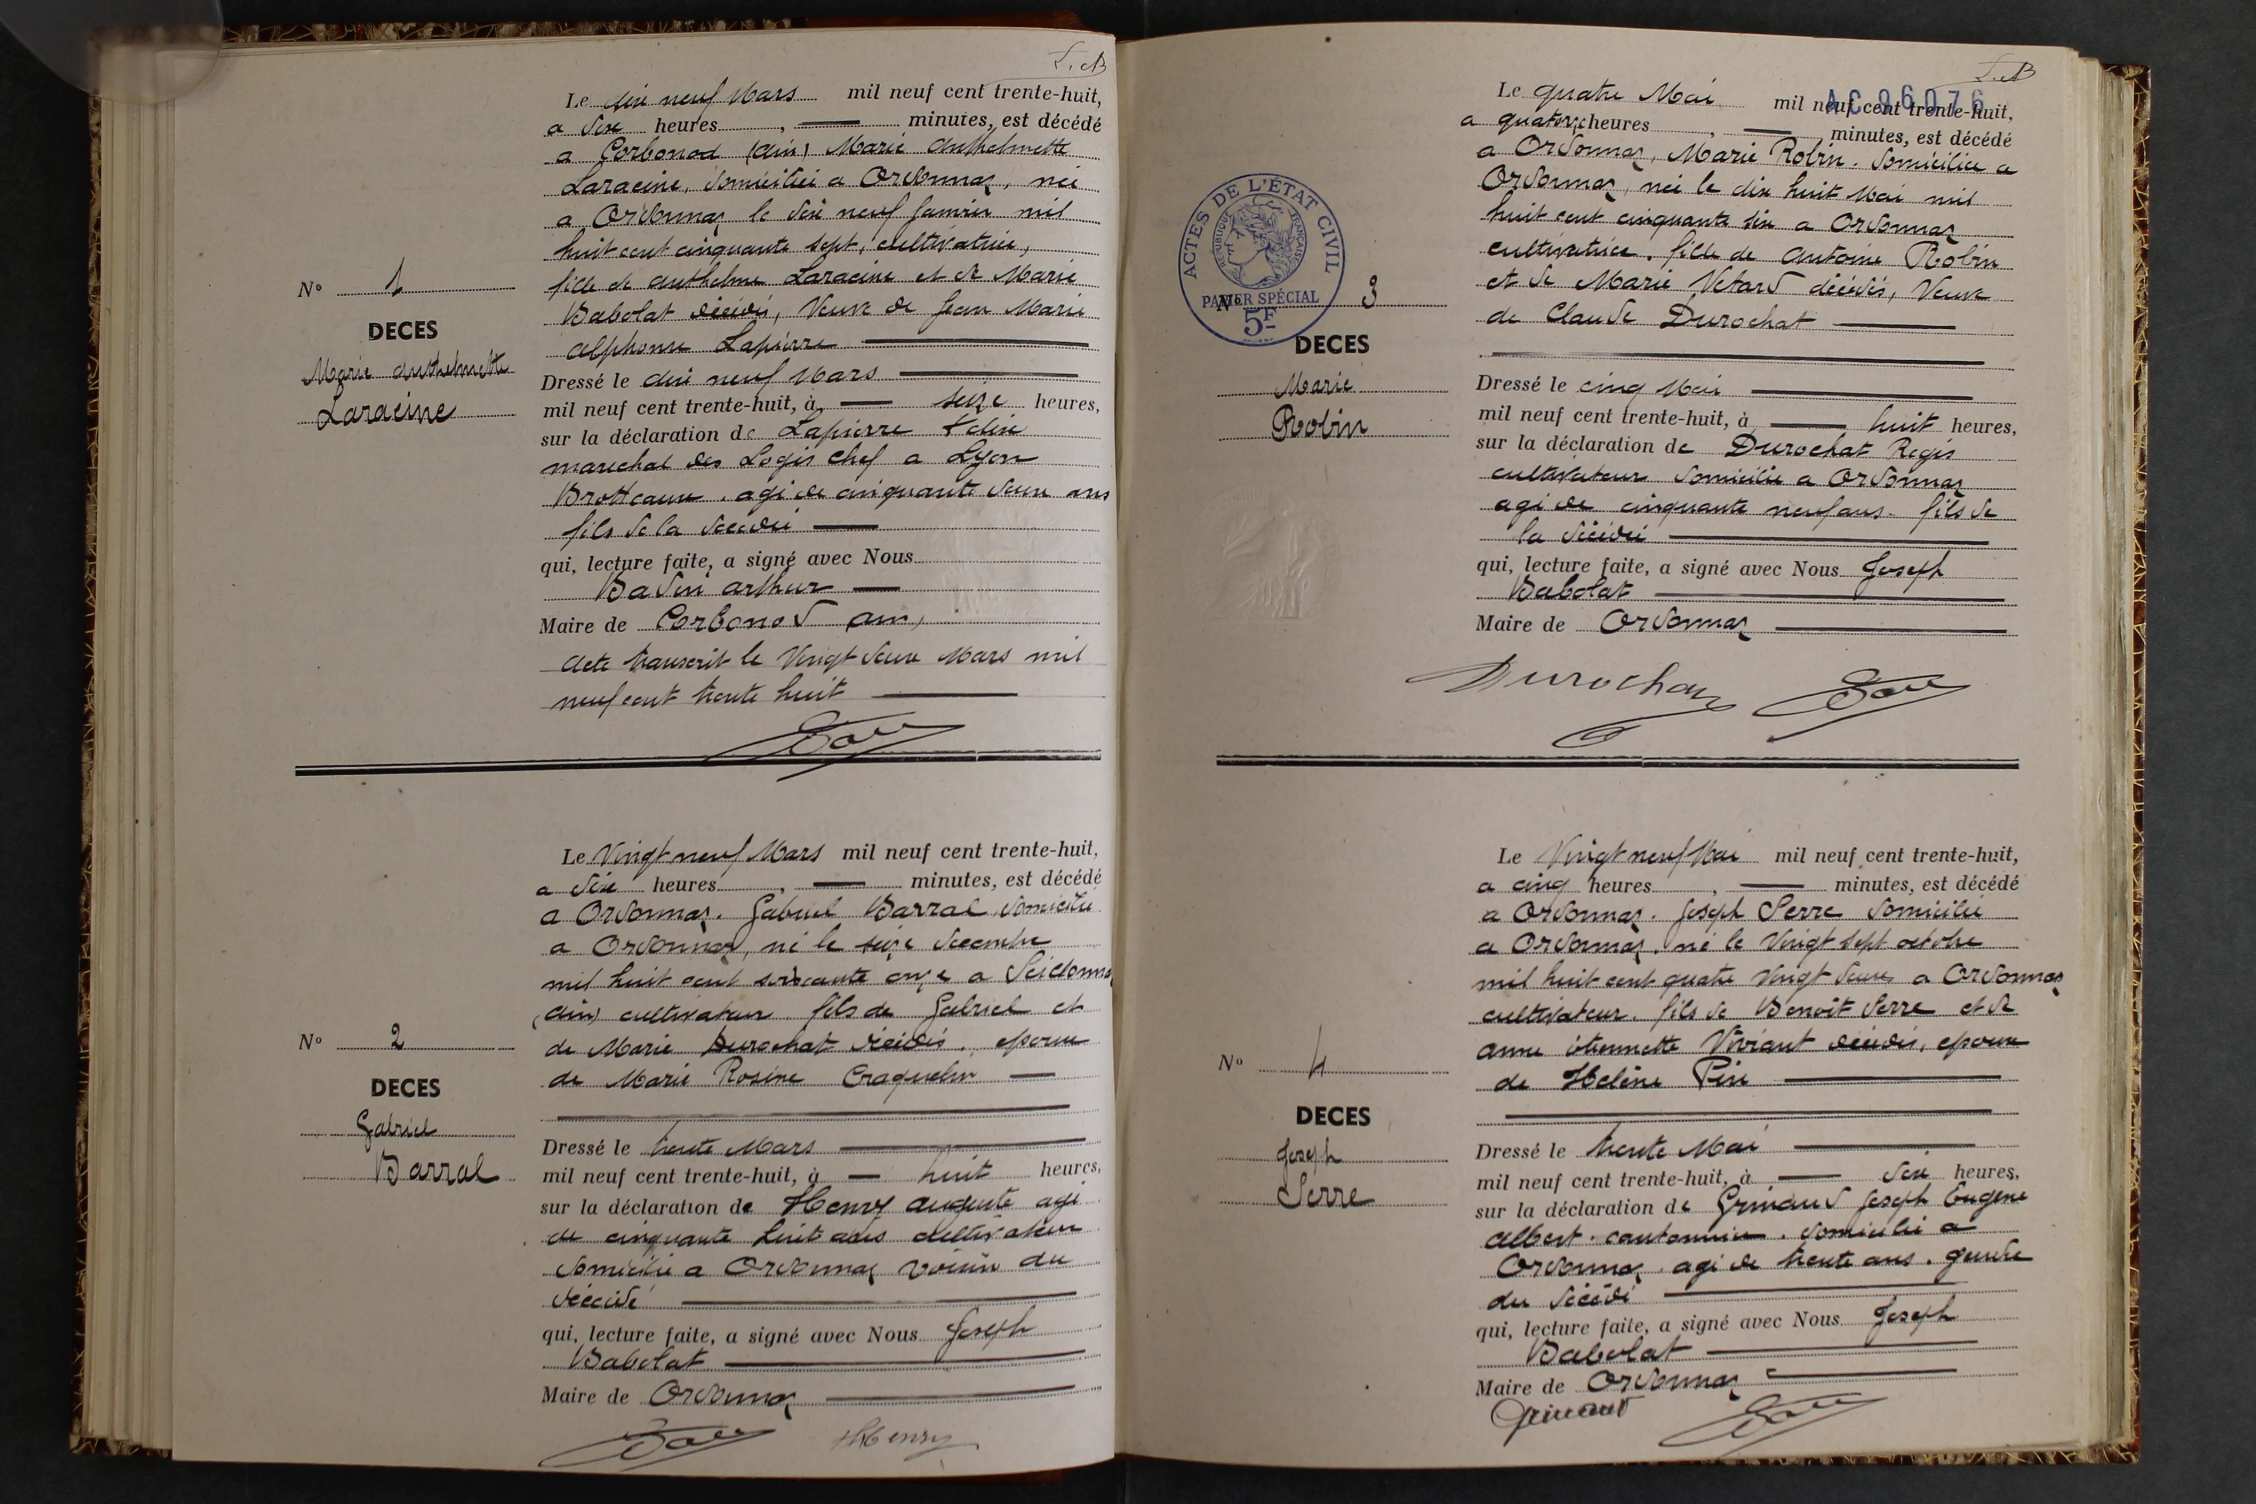 J. B
Le dix neuf Mars mil neuf cent trente-huit,
a dix heures, — minutes, est décédé
a Corbonod (ain) Marie Anthelmette
Laracine, domiciliée a Ordonnaz, née
a Ordonnaz le dix neuf Janvier mil
huit cent cinquante sept, cultivatrice,
fille de Anthelme Laracine et de Marie
Babolat décédés, Veuve de Jean Marie
Alphonse Lapierre —
Nº 1
DECES
Marie Anthelmette
Laracine
Dressé le dix neuf Mars —
mil neuf cent trente-huit, à — seize heures,
sur la déclaration de Lapierre
marechal des Logis chef a Lyon
Brotteaux. agé de cinquante deux ans
fils de la décédée —
qui, lecture faite, a signé avec Nous
Badin arthur —
Maire de Corbonod ain,
Acte transcrit le Vingt deux Mars mil
neuf cent trente huit —
Le Vingt neuf Mars mil neuf cent trente-huit,
a dix heures, — minutes, est décédé
a Ordonnaz. Gabriel Barral domicilié
a Ordonnaz, né le seize decembre
mil huit cent soixante onze a Seillonnaz
(ain) cultivateur fils de Gabriel et
de Marie Durochat décédés, epoux
de Marie Rosine Craquelin —
Nº 2
DECES
Gabriel
Barral
Dressé le trente Mars —
mil neuf cent trente-huit, à — huit heures,
sur la déclaration de Henry auguste agé
de cinquante huit ans cultivateur
domicilié a Ordonnaz voisin du
décédé —
qui, lecture faite, a signé avec Nous Joseph
Babolat —
Maire de Ordonnaz —
Henry
J. B
AC96076
Le quatre Mai mil neuf cent trente-huit,
a quatorze heures, — minutes, est décédé
a Ordonnaz, Marie Robin. domiciliée a
Ordonnaz, née le dix huit Mai mil
huit cent cinquante six a Ordonnaz
cultivatrice. fille de Antoine Robin
et de Marie Vetard décédés, Veuve
de Claude Durochat —
ACTES DE L'ÉTAT CIVIL
RÉPUBLIQUE FRANÇAISE
PAPIER SPÉCIAL
5F
Nº 3
DECES
Marie
Robin
Dressé le cinq Mai —
mil neuf cent trente-huit, à — huit heures,
sur la déclaration de Durochat Regis
cultivateur domicilié a Ordonnaz
agé de cinquante neuf ans. fils de
la décédée —
qui, lecture faite, a signé avec Nous Joseph
Babolat —
Maire de Ordonnaz —
Durochat
Le Vingt neuf Mai mil neuf cent trente-huit,
a cinq heures, — minutes, est décédé
a Ordonnaz. Joseph Serre domicilié
a Ordonnaz. né le Vingt sept octobre
mil huit cent quatre Vingt deux a Ordonnaz
cultivateur. fils de Benoît Serre et de
anne étiennette Viviant décédés, epoux
de Helène Pin —
Nº 4
DECES
Joseph
Serre
Dressé le trente Mai —
mil neuf cent trente-huit, à — dix heures,
sur la déclaration de Grinand Joseph Eugène
Albert. cantonnier. domicilié a
Ordonnaz. agé de trente ans. gendre
du décédé —
qui, lecture faite, a signé avec Nous Joseph
Babolat —
Maire de Ordonnaz —
Grinand